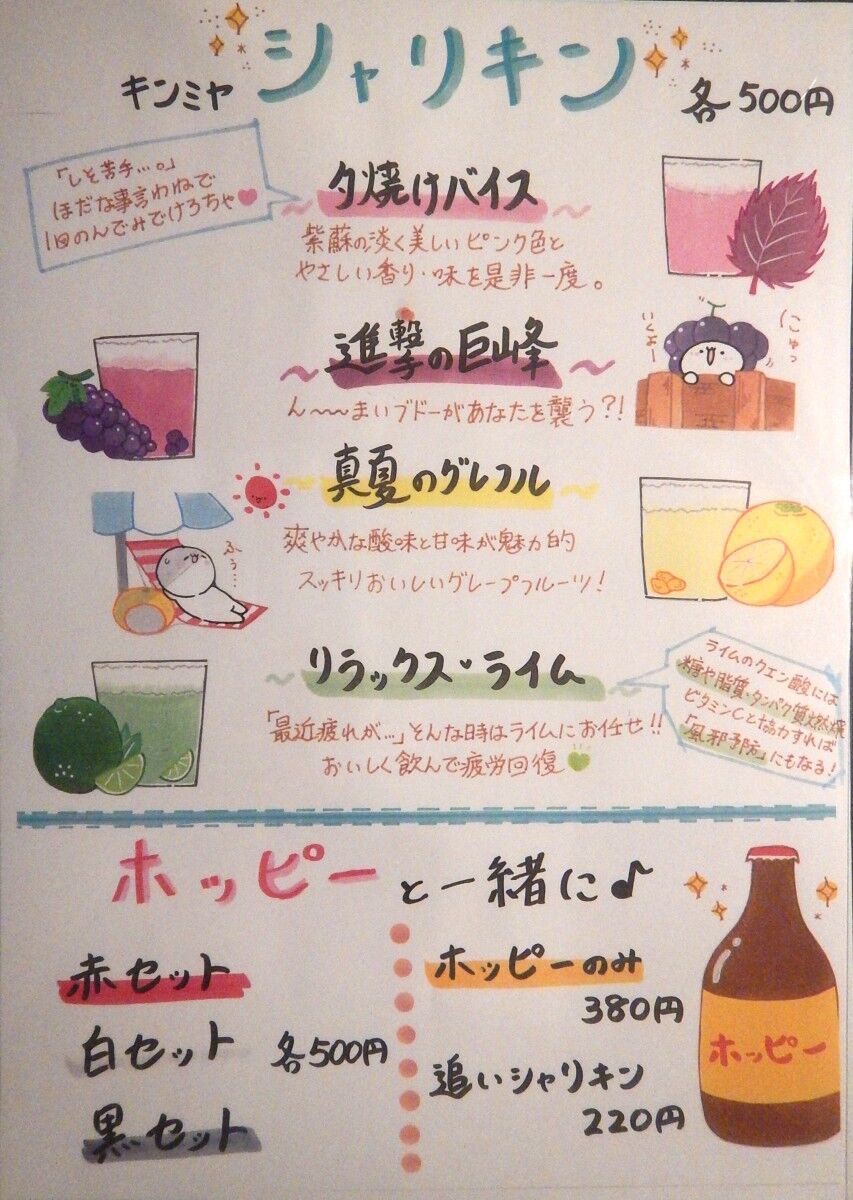 キンミヤ シャリキン 各500円
「しそ苦手…。」
ほだな事言わねで
1回のんでみでけろちゃ
夕焼けバイス
紫蘇の淡く美しいピンク色と
やさしい香り・味を是非一度。
進撃の巨峰
ん〜〜まいブドーがあなたを襲う?!
にゅっ
いくよー
真夏のグレフル
爽やかな酸味と甘味が魅力的
スッキリおいしいグレープフルーツ!
ふぅ…
リラックス・ライム
「最近疲れが…」そんな時はライムにお任せ!!
おいしく飲んで疲労回復
ライムのクエン酸には
糖や脂質・タンパク質燃焼
ビタミンCと協力すれば
「風邪予防」にもなる!
ホッピーと一緒に♪
赤セット
白セット 各500円
黒セット
ホッピーのみ
380円
追いシャリキン
220円
ホッピー